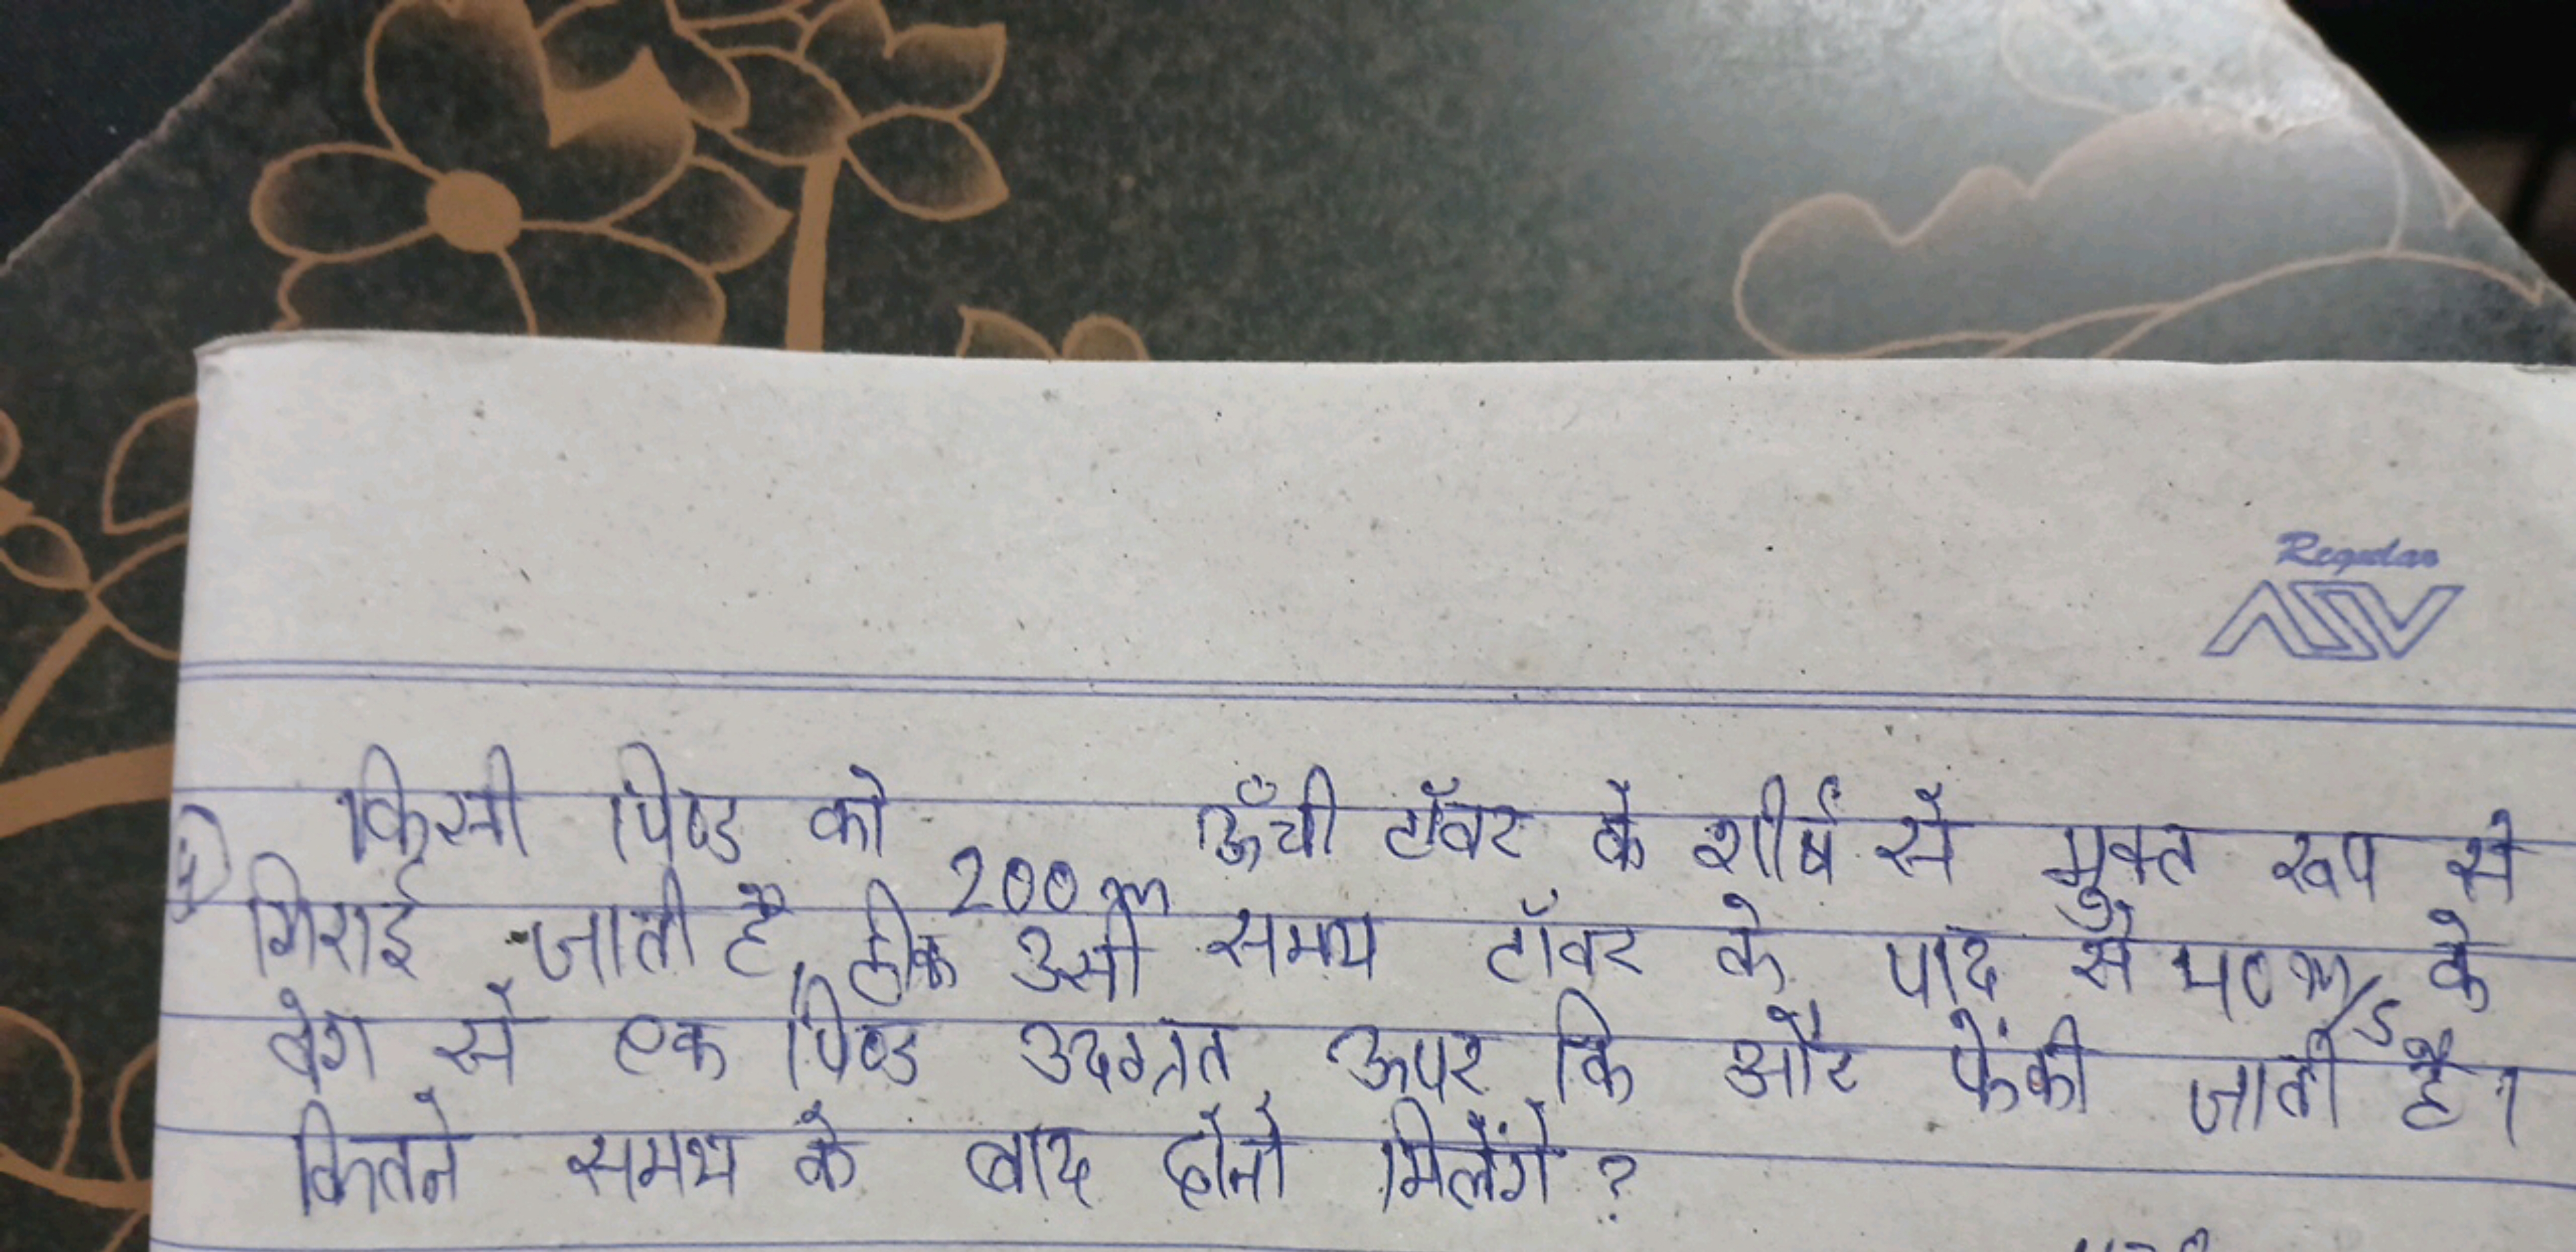 Regular
ASV
किसी पिण्ड को 200 m ऊँची टॉवर के शीर्ष से मुक्त रूप से
गिराई जाती है, ठीक उसी समय टॉवर के पाद से 40 m/s के
वेग से एक पिण्ड उदग्रत ऊपर कि और फेंकी जाती है।
कितने समय के बाद दोनो मिलेंगे ?